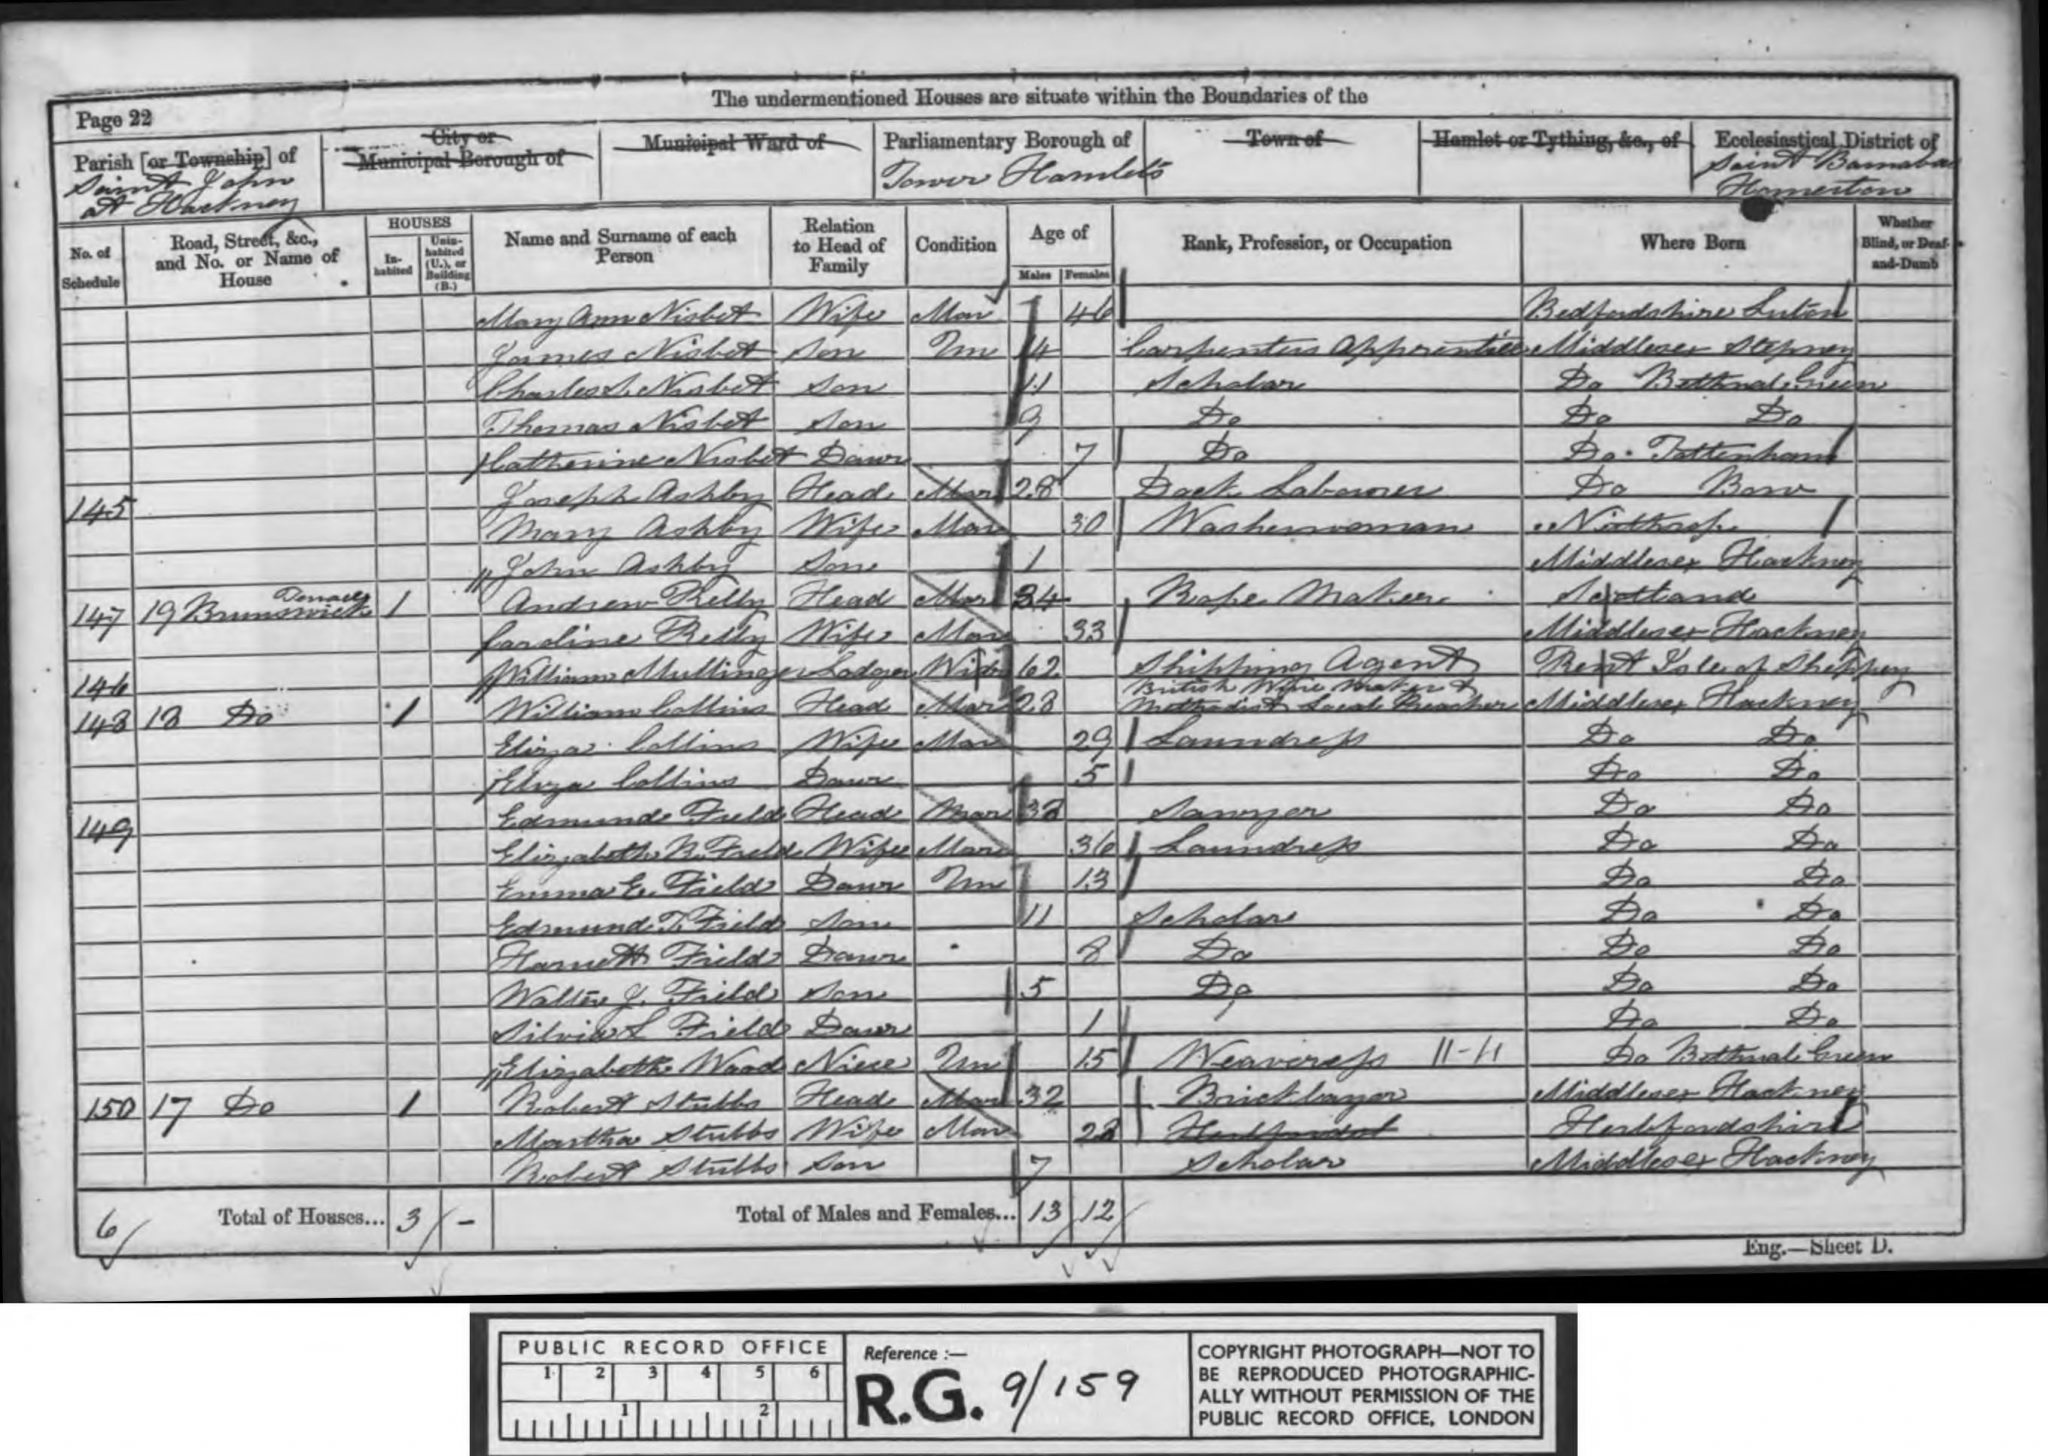 The undermentioned Houses are situate within the Boundaries of the
Page 22
Parish [or Township] of
Saint John
at Hackney
City or
Municipal Borough of
Municipal Ward of
Parliamentary Borough of
Tower Hamlets
Town of
Hamlet or Tything, &c., of
Ecclesiastical District of
Saint Barnabas
Homerton
No. of Schedule
Road, Street, &c., and No. or Name of House
HOUSES
In-habited
Unin-habited (U.), or Building (B.)
Name and Surname of each Person
Relation to Head of Family
Condition
Age of
Males Females
Rank, Profession, or Occupation
Where Born
Whether Blind, or Deaf-and-Dumb
Mary Ann Nisbet Wife Mar 46 Bedfordshire Luton
James Nisbet Son Un 14 Carpenters Apprentice Middlesex Stepney
Charles S. Nisbet Son 11 Scholar Do Bethnal Green
Thomas Nisbet Son 9 Do Do Do
Catherine Nisbet Dawr 7 Do Do Tottenham
145 Joseph Ashby Head Mar 28 Dock Labourer Do Bow
Mary Ashby Wife Mar 30 Washerwoman
John Ashby Son 1 Middlesex Hackney
147 19 Brunswick Terrace 1 Andrew Kelly Head Mar 34 Rope Maker Scotland
Caroline Kelly Wife Mar 33 Middlesex Hackney
146 William Mullinger Lodger Widr 62 Shipping Agent Kent Isle of Sheppey
148 18 Do 1 William Collins Head Mar 28 British Wine Maker & Methodist Local Preacher Middlesex Hackney
Eliza Collins Wife Mar 29 Laundress Do Do
Eliza Collins Dawr 5 Do Do
149 Edmund Field Head Mar 38 Sawyer Do Do
Elizabeth R. Field Wife Mar 36 Laundress Do Do
Emma E. Field Dawr Un 13 Do Do
Edmund T. Field Son 11 Scholar Do Do
Harriett Field Dawr 8 Do Do Do
Walter J. Field Son 5 Do Do Do
Silvia L Field Dawr 1 Do Do
Elizabeth Wood Niece Un 15 Weaveress 11-11 Do Bethnal Green
150 17 Do 1 Robert Stubbs Head Mar 32 Bricklayer Middlesex Hackney
Martha Stubbs Wife Mar 28 Hertfordshire
Robert Stubbs Son 7 Scholar Middlesex Hackney
6 Total of Houses... 3 - Total of Males and Females... 13 12
Eng.—Sheet D.
PUBLIC RECORD OFFICE
1 2 3 4 5 6
1 2
Reference :—
R.G. 9/159
COPYRIGHT PHOTOGRAPH—NOT TO
BE REPRODUCED PHOTOGRAPHIC-
ALLY WITHOUT PERMISSION OF THE
PUBLIC RECORD OFFICE, LONDON